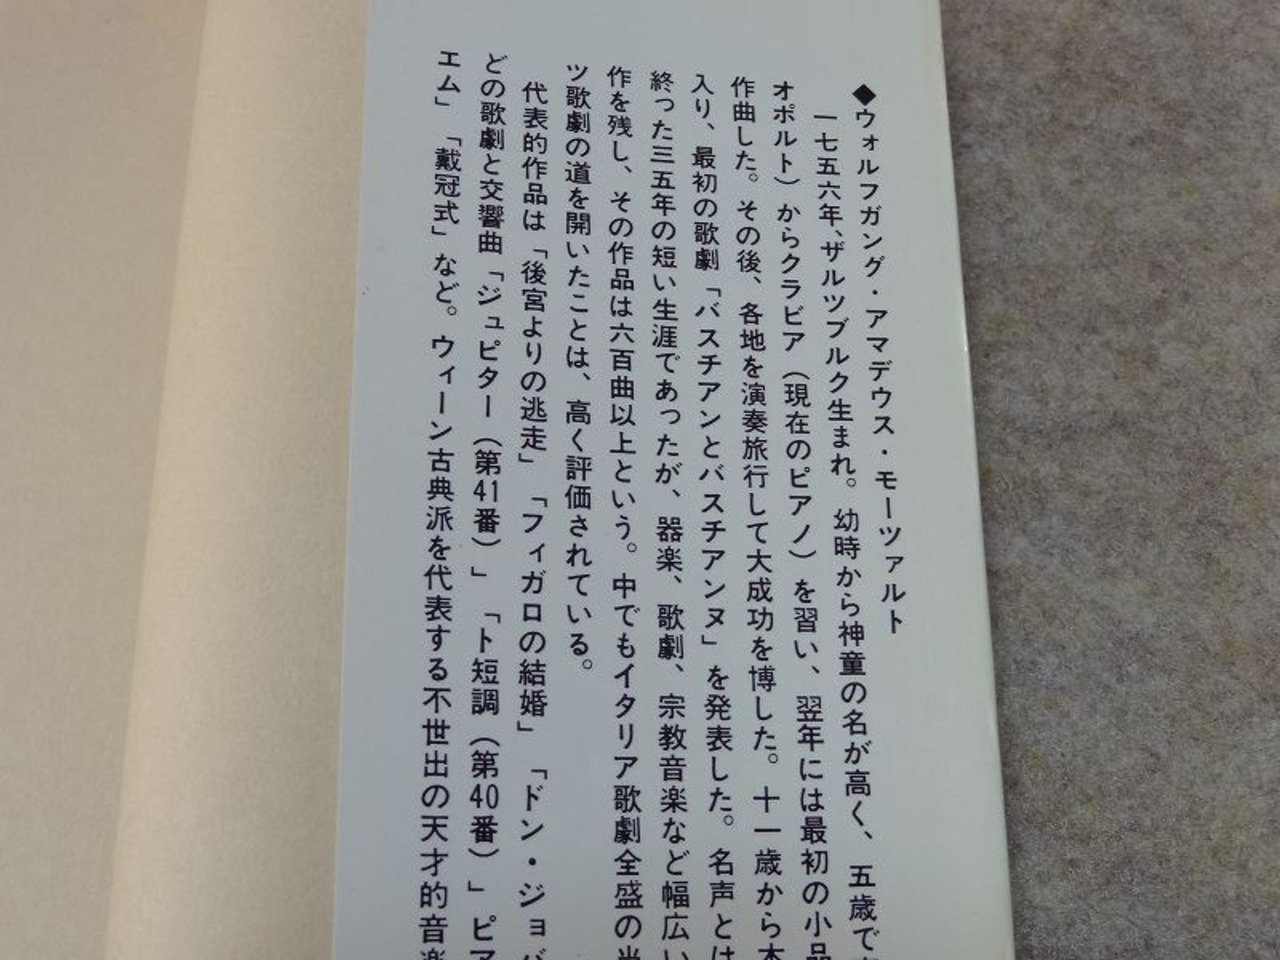 ◆ウォルフガング・アマデウス・モーツァルト
一七五六年、ザルツブルク生まれ。幼時から神童の名が高く、五歳で
オポルト）からクラビア（現在のピアノ）を習い、翌年には最初の小品
作曲した。その後、各地を演奏旅行して大成功を博した。十一歳から本
入り、最初の歌劇「バスチアンとバスチアンヌ」を発表した。名声とは
終った三五年の短い生涯であったが、器楽、歌劇、宗教音楽など幅広い
作を残し、その作品は六百曲以上という。中でもイタリア歌劇全盛の当
ツ歌劇の道を開いたことは、高く評価されている。
代表的作品は「後宮よりの逃走」「フィガロの結婚」「ドン・ジョバ
どの歌劇と交響曲「ジュピター（第41番）」「ト短調（第40番）」ピア
エム」「戴冠式」など。ウィーン古典派を代表する不世出の天才的音楽